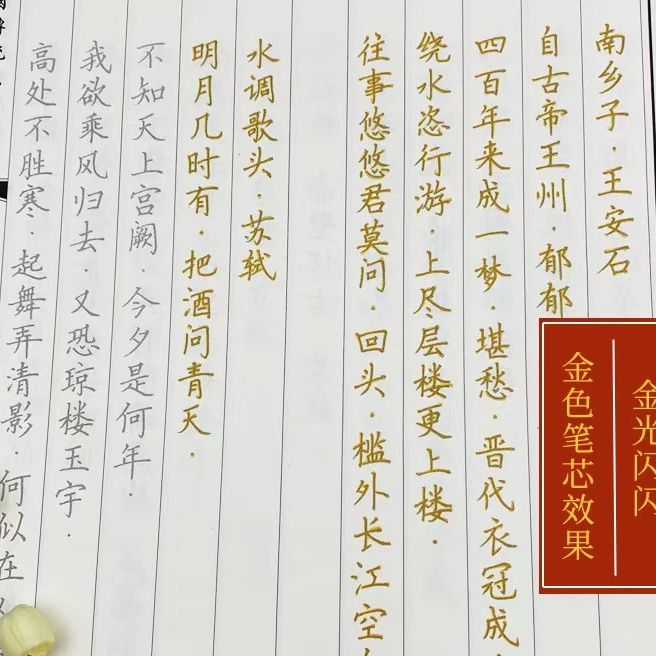 南乡子·王安石
自古帝王州·郁郁
四百年来成一梦·堪愁·晋代衣冠成
绕水恣行游·上尽层楼更上楼·
往事悠悠君莫问·回头·槛外长江空
水调歌头·苏轼
明月几时有·把酒问青天·
不知天上宫阙·今夕是何年·
我欲乘风归去·又恐琼楼玉宇·
高处不胜寒·起舞弄清影·何似在
金光闪闪
金色笔芯效果